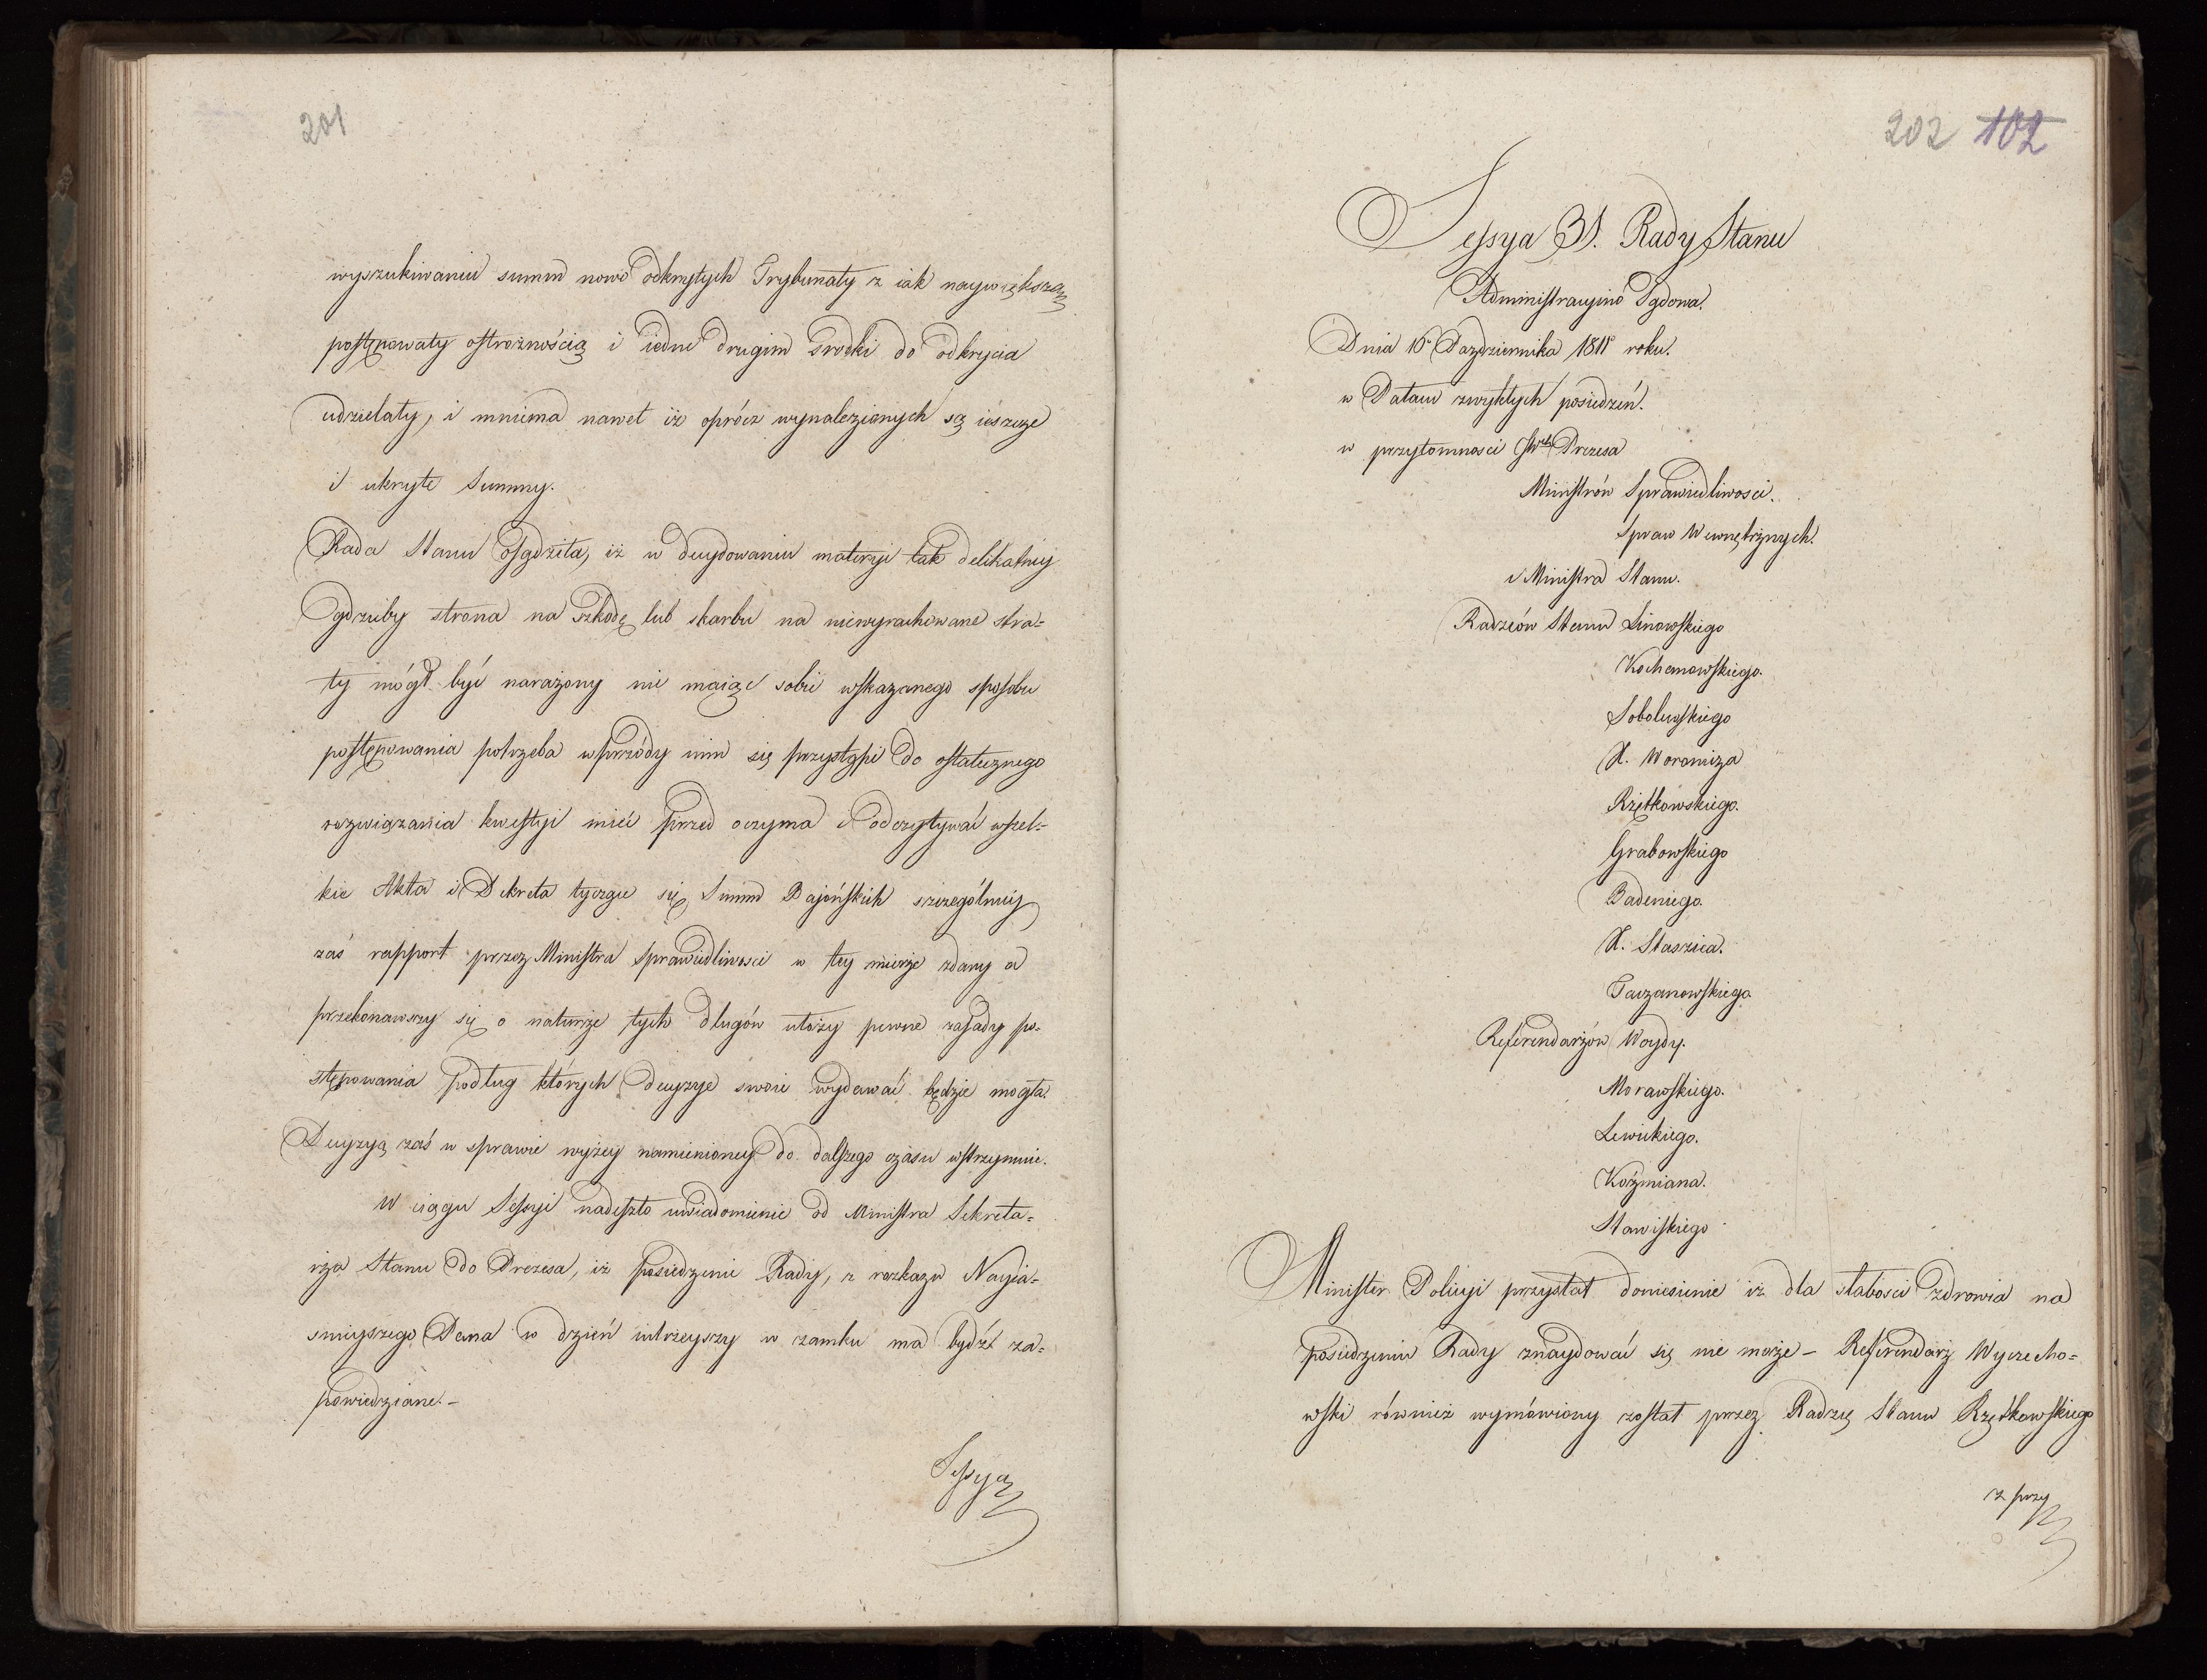 201
wyszukiwaniu summ nowo odkrytych Trybunały z iak naywiększą
postępowały ostrożnością i iedne drugim srodki do odkrycia
udzielały, i mniema nawet iż oprócz wynalezionych są ieszcze
i ukryte Summy.
Rada Stanu osądziła, iż w decydowaniu materyi tak delikatney
gdzieby strona na szkodę lub skarbu na niewyrachowane stra=
ty mógł być narażony nie maiąc sobie wskazanego sposobu
postępowania potrzeba wprzódy nim się przystąpi do ostatecznego
rozwiązania kwestyi mieć przed oczyma i odczytywać wszel=
kie Akta i Dekreta tyczące się Summ Bajońskich szczególniey
zaś rapport przez Ministra Sprawiedliwosci w tey mierze zdany a
przekonawszy się o naturze tych długów ułoży pewne zasady po=
stępowania podług których decyzye swoie wydawać będzie mogła.
Decyzyą zaś w sprawie wyżey namienioney do dalszego czasu wstrzymuie.
W ciągu Sessyi nadeszło uwiadomienie od Ministra Sekreta=
rza Stanu do Prezesa, iż posiedzenie Rady, z rozkazu Nayia=
snieyszego Pana w dzień iutrzeyszy w zamku ma bydź za=
powiedziane.–
Sessya
202 102
Sessya 31. Rady Stanu
Administracyino Sądowa.
Dnia 16° Pazdziernika 1811° roku.
w Pałacu zwykłych posiedzeń.
w przytomnosci Prezesa
Ministrów Sprawiedliwosci.
Spraw Wewnętrznych.
i Ministra Stanu.
Radzców Stanu Linowskiego
Kochanowskiego.
Sobolewskiego
X. Woronicza
Rzętkowskiego.
Grabowskiego
Badeniego.
X. Staszica.
Taczanowskiego
Referendarzów Woydy.
Morawskiego.
Lewickiego.
Koźmiana.
Stawiskiego
Minister Policyi przysłał doniesienie iż dla słabosci zdrowia na
posiedzeniu Rady znaydować się nie może – Referendarz Wyczecho=
wski również wymówiony został przez Radzcę Stanu Rzętkowskiego
z przy